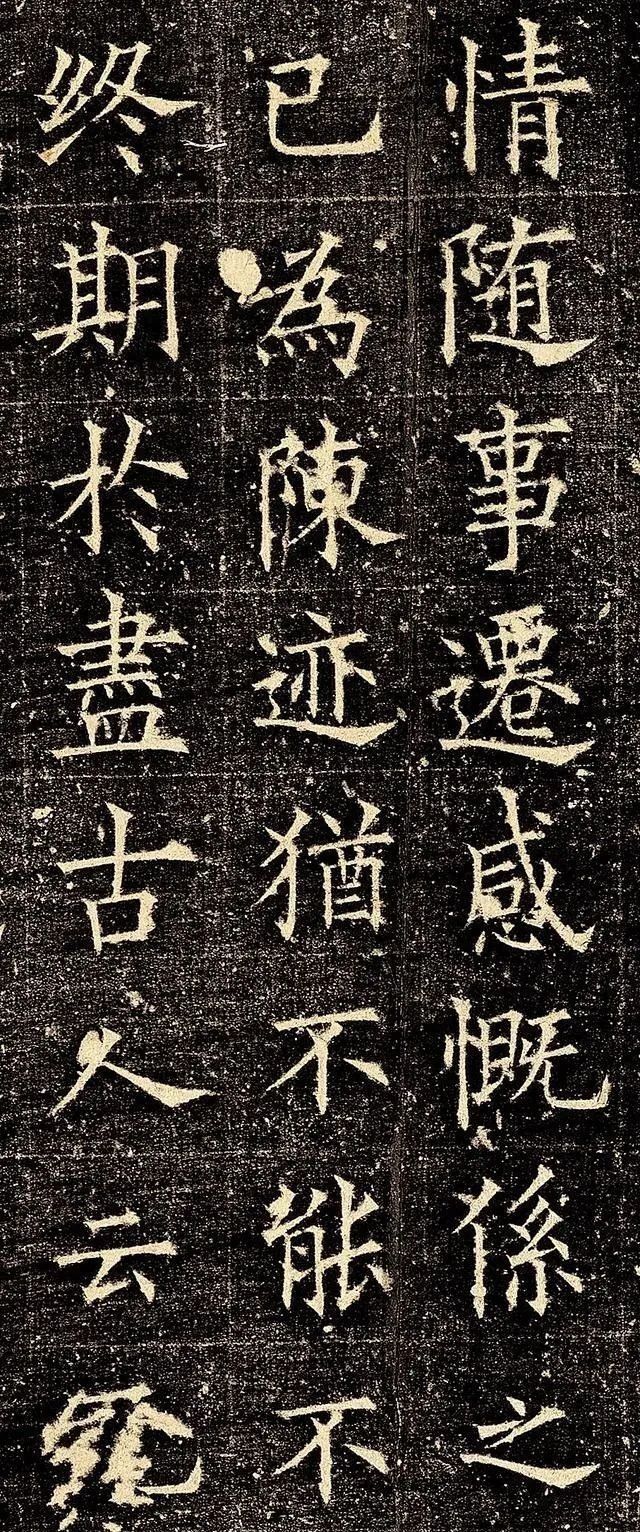 情随事遷感慨係之
已為陳迹猶不能不
終期於盡古人云